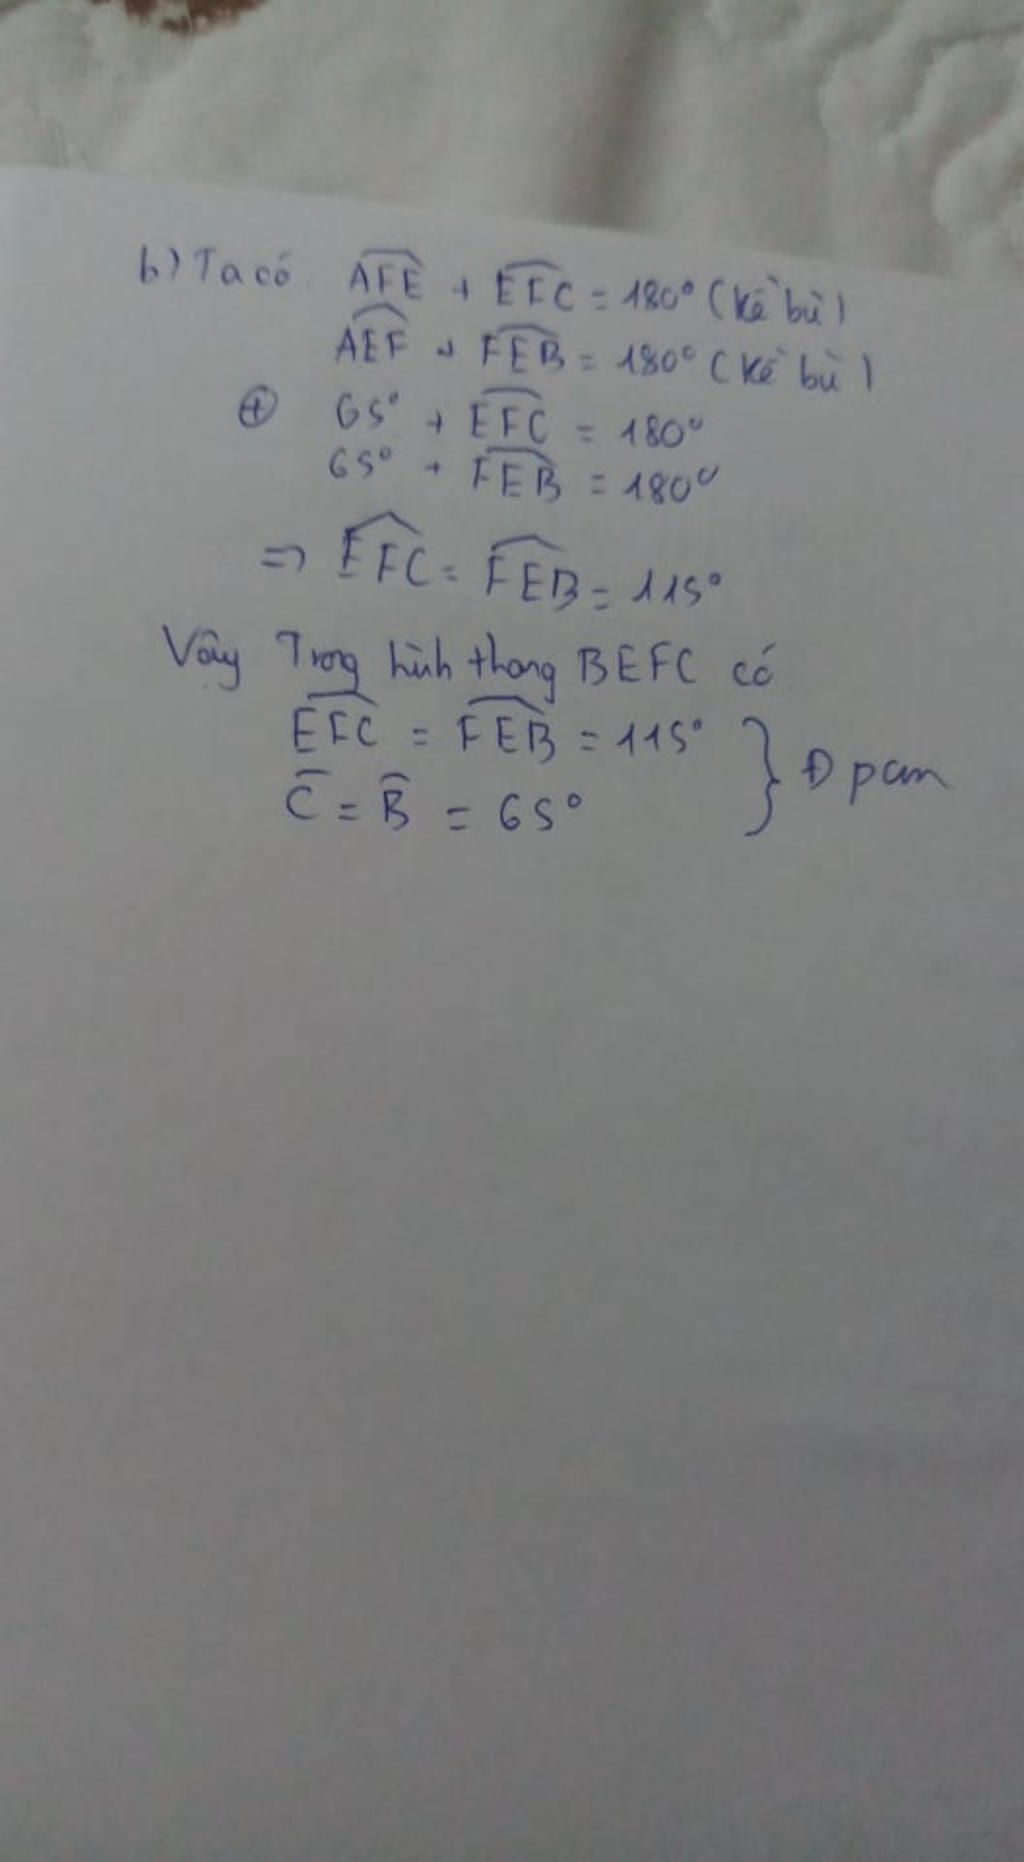 b) Ta có AFE + EFC = 180° (kề bù)
AEF + FEB = 180° (kề bù)
⊕ 65° + EFC = 180°
65° + FEB = 180°
=> EFC = FEB = 115°
Vậy Trong hình thang BEFC có
EFC = FEB = 115°
C = B = 65° } Đpcm